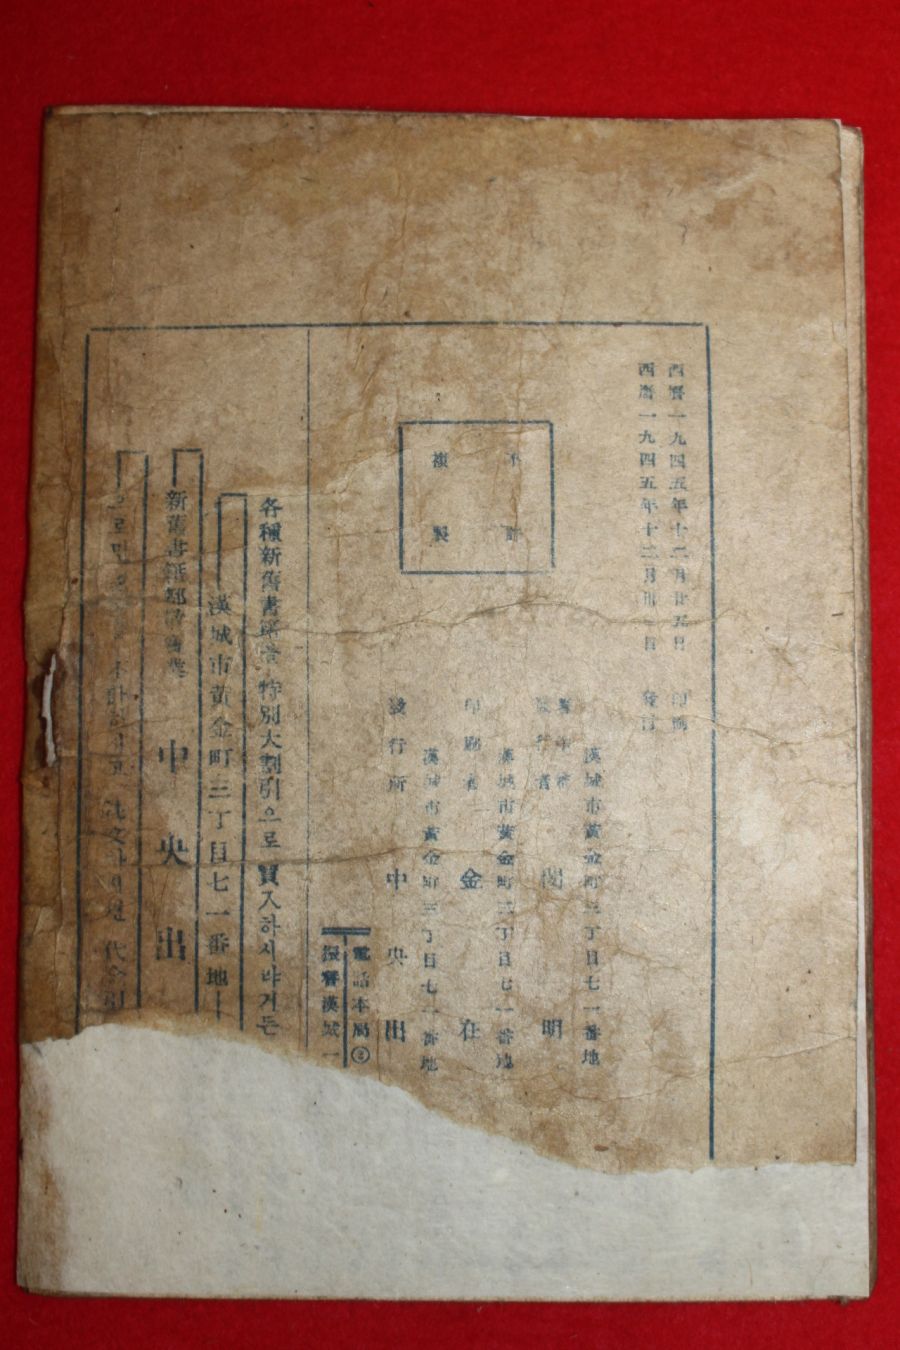 西曆一九四五年十二月廿五日 印刷
西曆一九四五年十二月卅一日 發行
不許
複製
漢城市黃金町三丁目七一番地
著作者
發行者 閔 明
漢城市黃金町三丁目七一番地
印刷者 金 在
漢城市黃金町三丁目七一番地
發行所 中央出
電話本局②
振替漢城一
各種新舊書籍을 特別大割引으로 買入하시랴거든
漢城市黃金町三丁目七一番地
新舊書籍都 中央出
으로 하시고 注文하시면 代金引